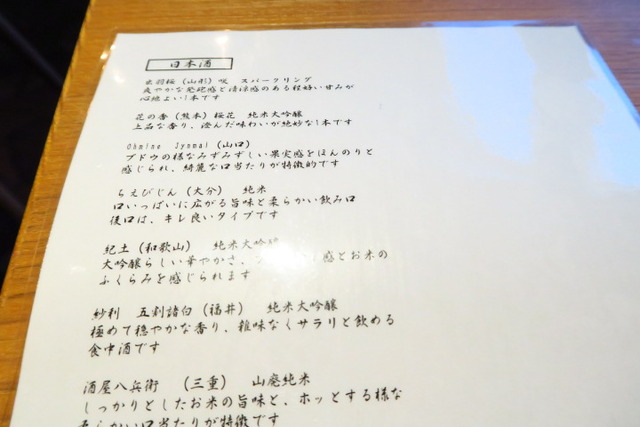 日本酒
出羽桜（山形）咲　スパークリング
爽やかな発泡感と清涼感のある程好い甘みが
心地よい1本です
花の香（熊本）桜花　純米大吟醸
上品な香り、澄んだ味わいが絶妙な1本です
Ohmine Junmai（山口）
ブドウの様なみずみずしい果実感をほんのりと
感じられ、綺麗な口当たりが特徴的です
ちえびじん（大分）　純米
口いっぱいに広がる旨味と柔らかい飲み口
後口は、キレ良いタイプです
紀土（和歌山）　純米大吟醸
大吟醸らしい華やかさ、感とお米の
ふくらみを感じられます
紗利　五割諸白（福井）　純米大吟醸
極めて穏やかな香り、雑味なくサラリと飲める
食中酒です
酒屋八兵衛　（三重）　山廃純米
しっかりとしたお米の旨味と、ホッとする様な
柔らかい口当たりが特徴です